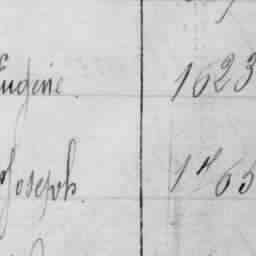 Eugene. 1623
Joseph. 1"65